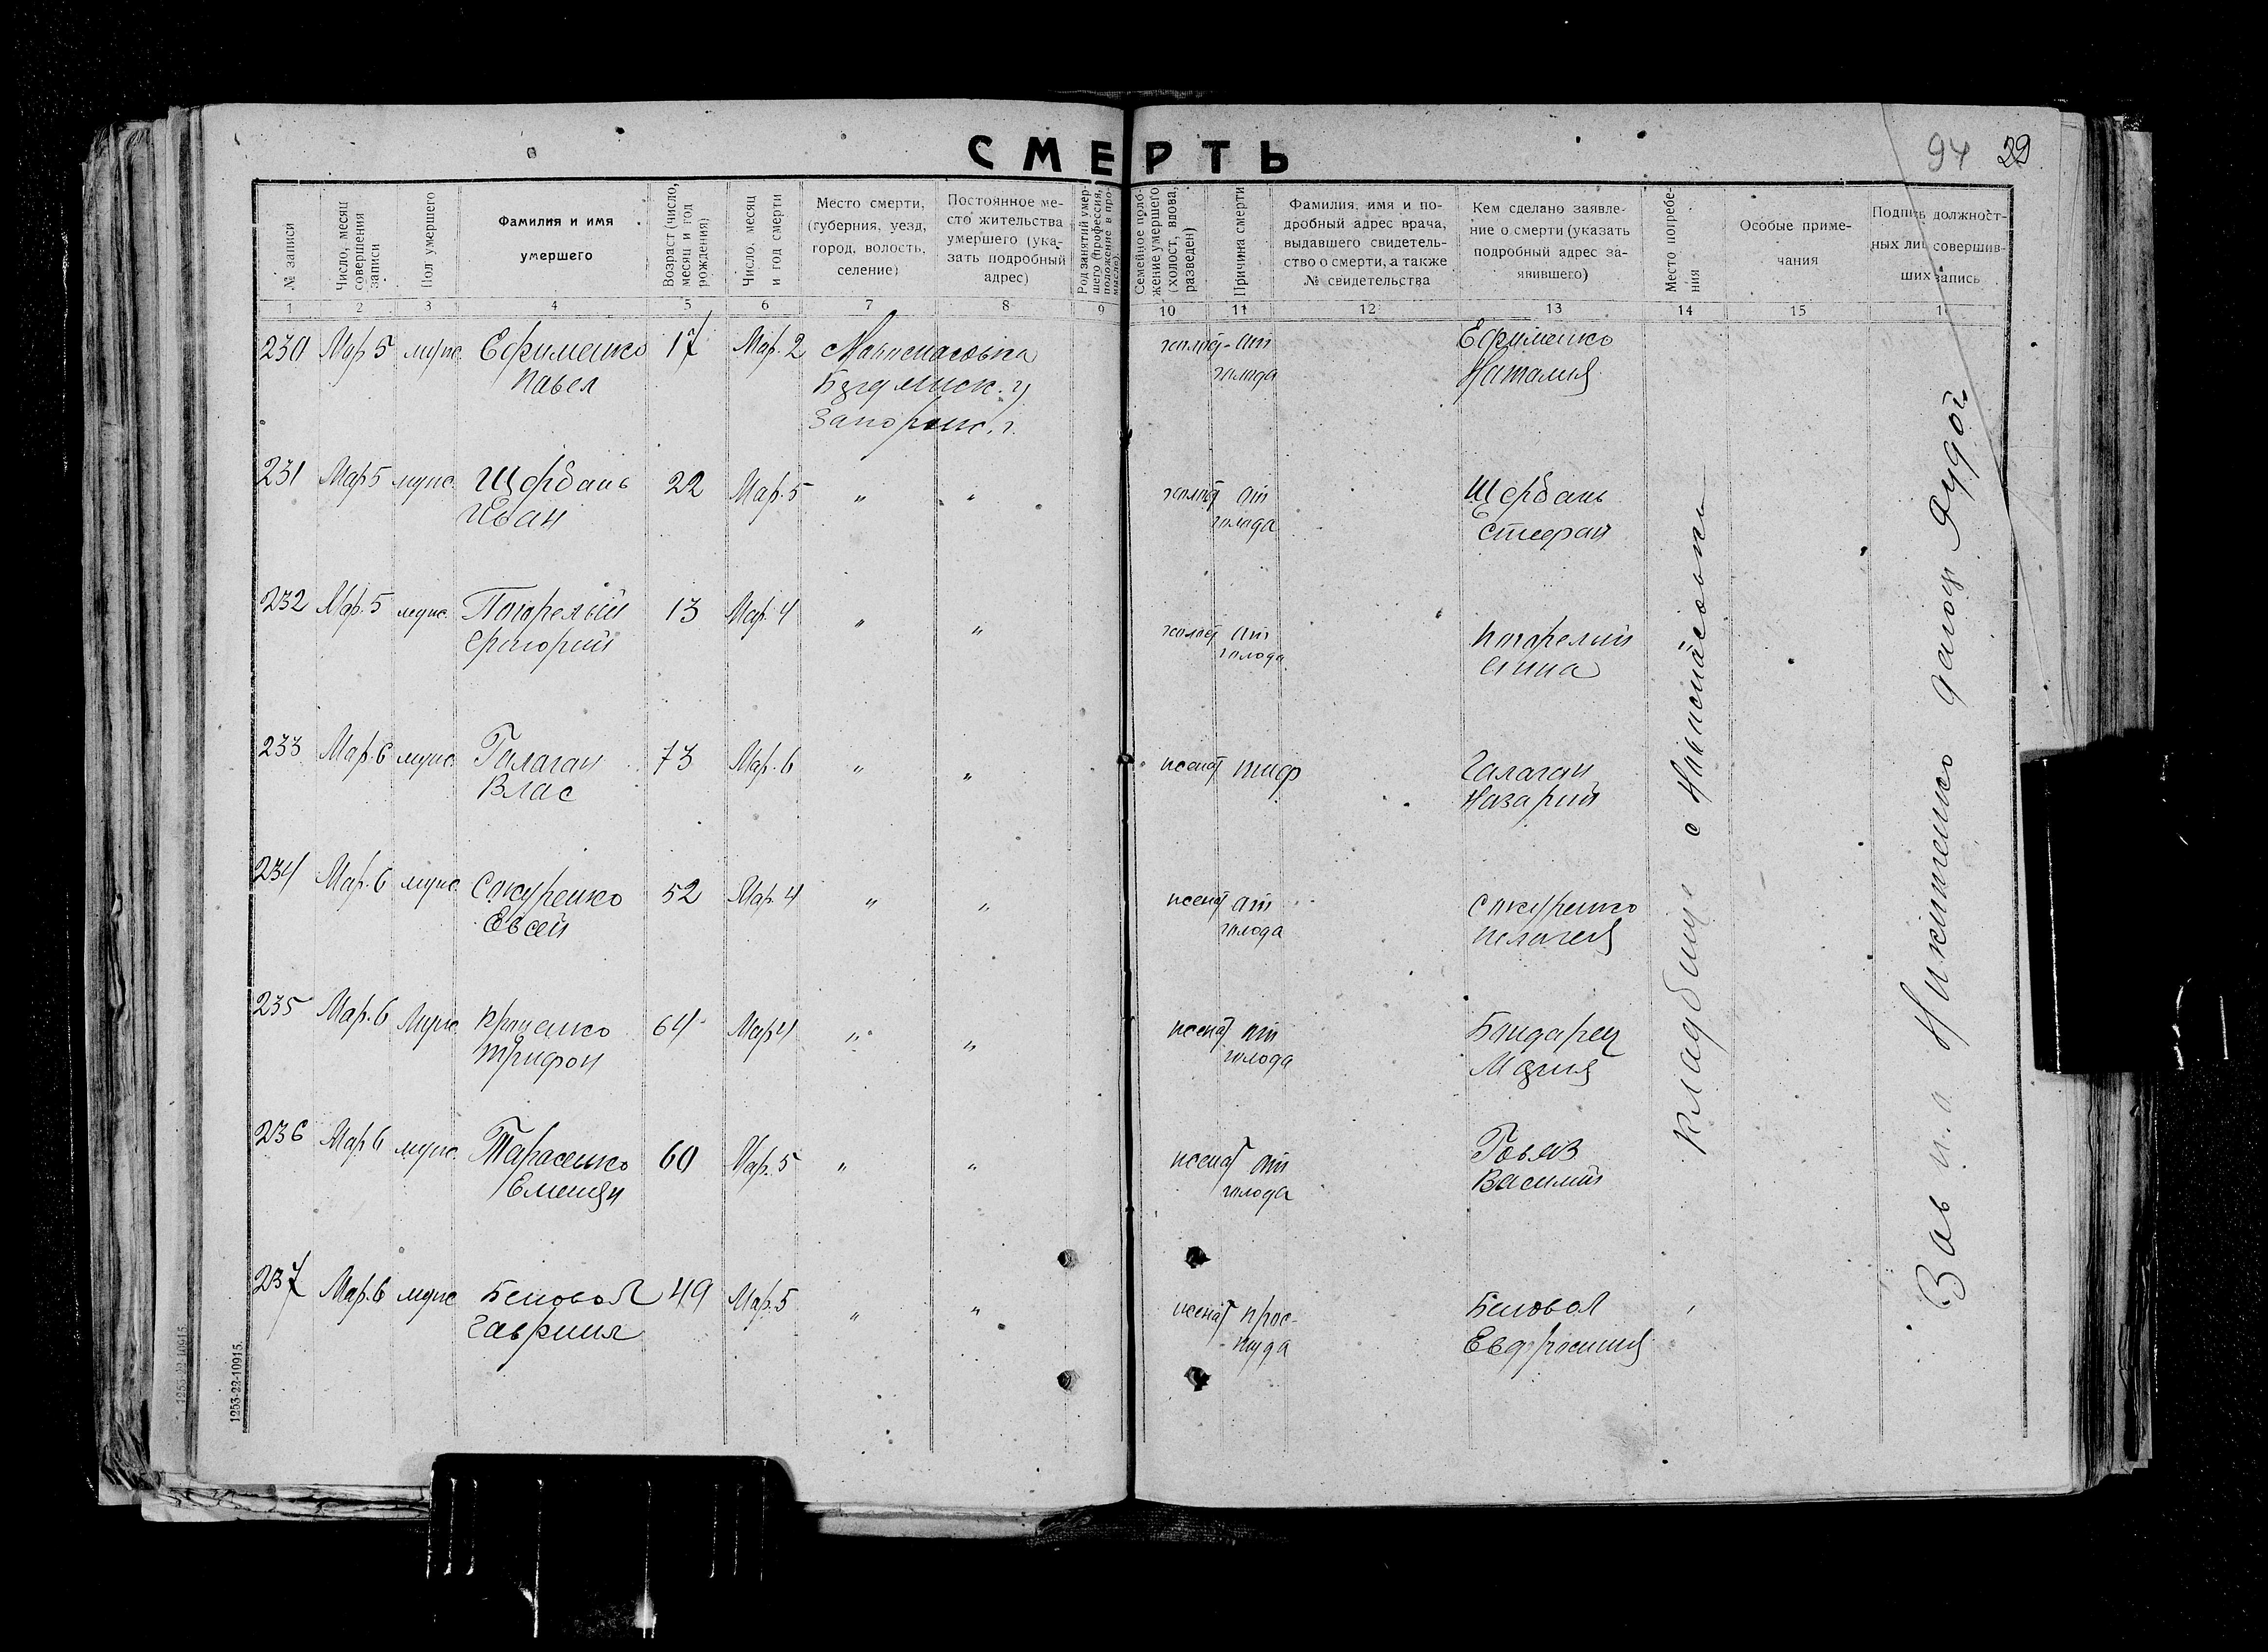 СМЕРТЬ
94 29
№ записи
Число, месяц совершения записи
Пол умершего
Фамилия и имя умершего
Возраст (число, месяц и год рождения)
Число, месяц и год смерти
Место смерти, (губерния, уезд, город, волость, селение)
Постоянное место жительства умершего (указать подробный адрес)
Род занятий умершего (профессия, положение в промысле).
Семейное положение умершего (холост, вдова, разведен)
Причина смерти
Фамилия, имя и подробный адрес врача, выдавшего свидетельство о смерти, а также № свидетельства
Кем сделано заявление о смерти (указать подробный адрес заявившего)
Место погребения
Особые примечания
Подпись должностных лиц совершивших запись
1 2 3 4 5 6 7 8 9 10 11 12 13 14 15
230 Мар 5 муж. Ефименко 17 Мар. 2 холост от Ефименко
Павел голода Наталия
Запорож. г.
231 Мар 5 муж. Щербань 22 Мар. 5 " " холост от Щербань
Иван голода Стефан
232 Мар. 5 муж. Погорелый 13 Мар. 4 " " холост от Погорелий
Григорий голода Анна
233 Мар. 6 муж. Галаган 73 Мар. 6 " " женат тиф Галаган
Влас Назарий
234 Мар. 6 муж. Сокуренко 52 Мар. 4 " " женат от Сокуренко
Евсей голода Пелагея
235 Мар. 6 Муж. 64 Мар 4 " " женат от Бондарец
Трифон голода Мария
236 Мар 6 муж. Тарасенко 60 Мар. 5 " " женат от
Емельян голода Василий
237 Мар. 6 муж Беловол 49 Мар. 5 " " женат прос-
Гавриил туда
Беловол
Евфросиния
Кладбище с
Зав Никитенко
1253-22-10915.
1253-22-10915